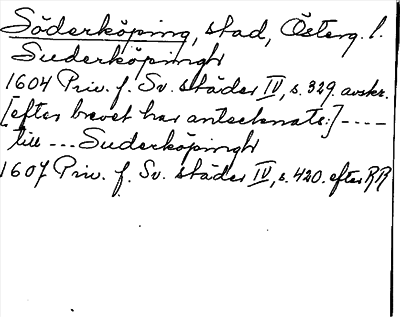 Söderköping, stad, Österg. l.
Suderköpingh
1604 Priv. f. Sv. städer IV, s. 329. avskr.
[efter brevet har antecknats:] ----
till --- Suderköpingh
1607 Priv. f. Sv. städer IV, s. 420. efter RR